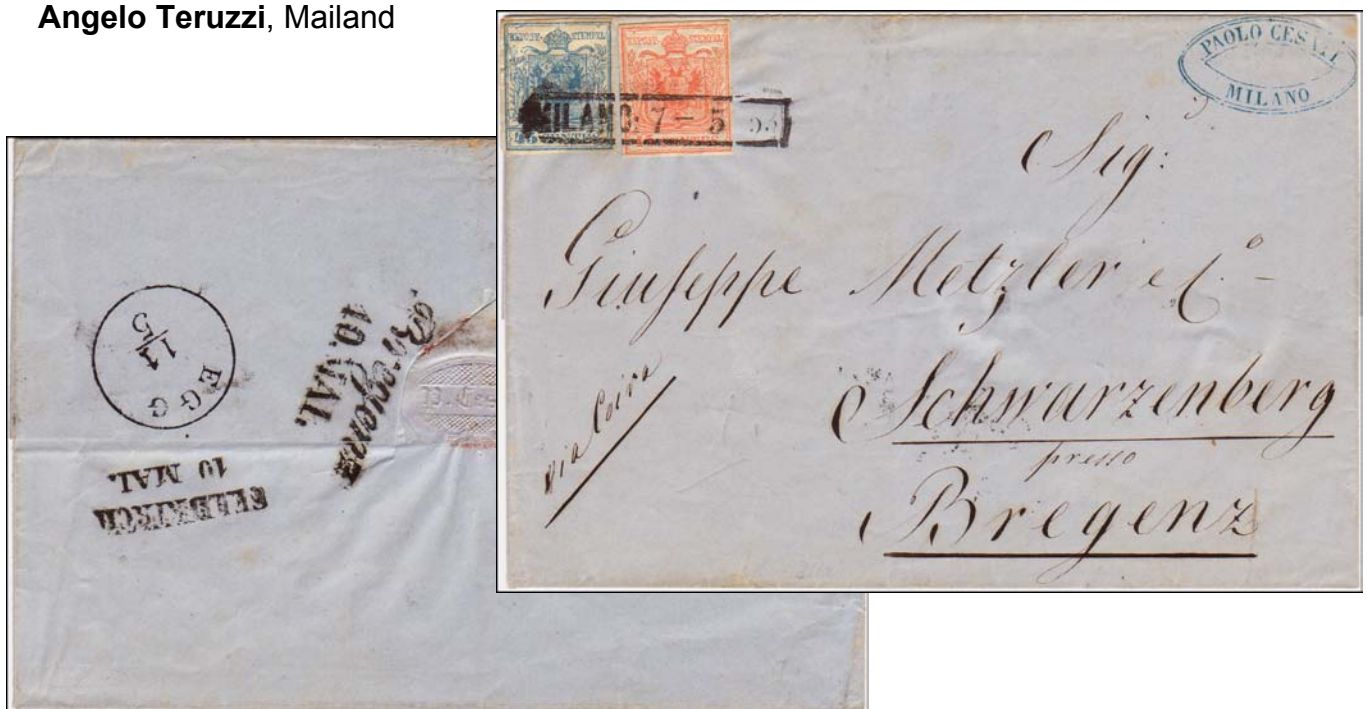 Angelo Teruzzi, Mailand
KKPOST-STEMPEL
KKPOST-STEMPEL
MILANO: 7 – 5
PAOLO CESATI
MILANO
Sig:
Giuseppe Metzler e C.º -
Schwarzenberg
presso
Bregenz
via Coira
EGG
11/5
Bregenz
10. MAI.
FELDKIRCH
10 MAI.